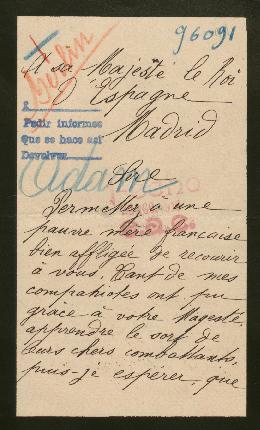 96091
A sa Majesté le Roi
d'Espagne
Madrid
Pedir informes
Que se hace así
Devolver
Sire
Permettez à une
pauvre mère française
bien affligée de recourir
à vous. Tant de mes
compatriotes ont pu
grâce à votre Majesté,
apprendre le sort de
leurs chers combattants,
puis-je espérer, que